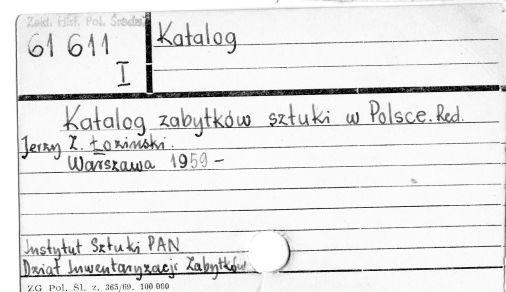 Zakł. Hist. Pol. Średn.
61 611
I
Katalog
Katalog zabytków sztuki w Polsce. Red.
Jerzy Z. Łoziński.
Warszawa 1959 –
Instytut Sztuki PAN
Dział Inwentaryzacji Zabytków
ZG Pol. Śl. z. 365/69. 100 000